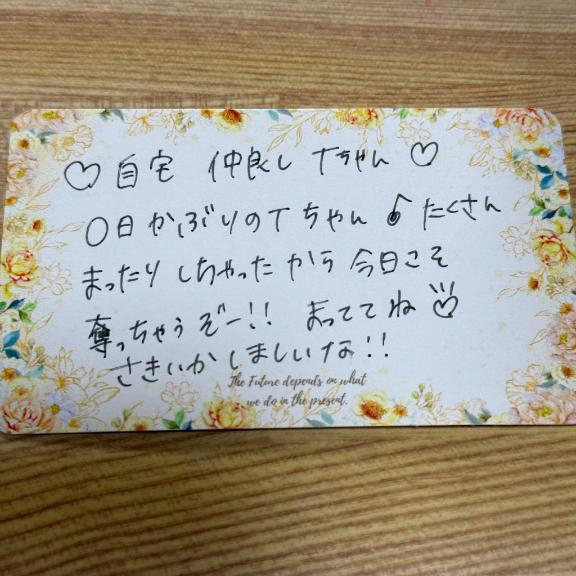 ♡自宅 仲良し Tちゃん♡
〇日かぶりのTちゃん♪たくさん
まったりしちゃったから今日こそ
奪っちゃうぞー!! まっててね♡
さきいかしましいな!!
The Future depends on what
we do in the present.